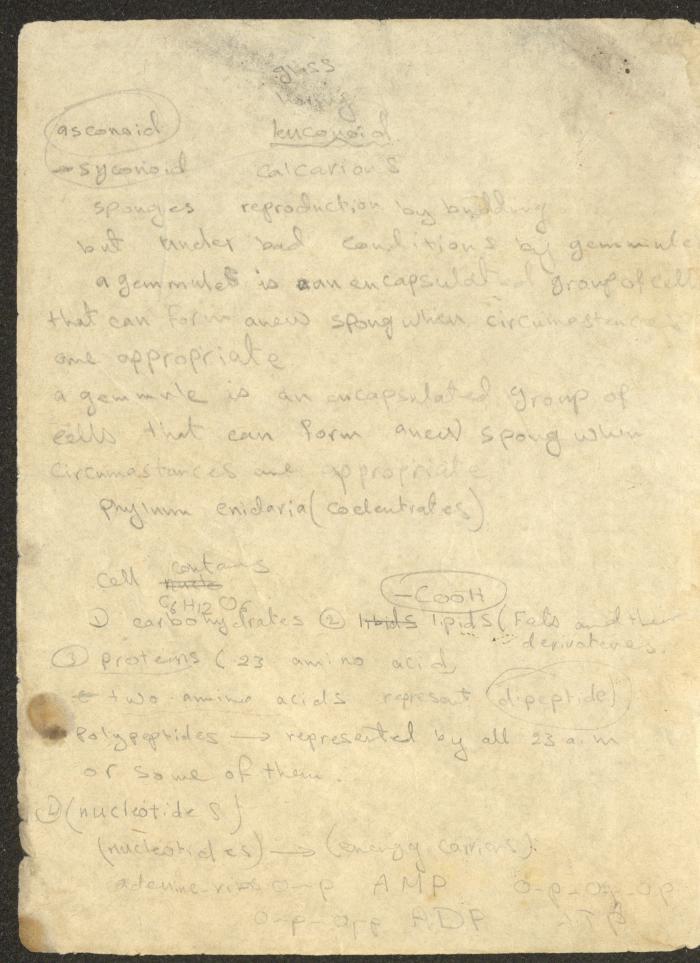 glass
horny
asconoid leuconoid
→ syconoid calcarious
sponges reproduction by budding
but under bad conditions by gemmule
a gemmules is an encapsulated group of cell
that can form anew spong when circumstances
are appropriate
a gemmule is an encapsulated group of
cells that can form anew spong when
circumastances are appropriate
phylnum cnidaria (coelentrates)
contains
cell nucle
C6H12O6 -COOH
1) carbohydrates 2 libids lipids (Fats and their
derivatives.
3 proteins (23 amino acid
two amino acids represent (dipeptide)
Polypeptides → represented by all 23 a.m
or some of them.
(nucleotides)
(nucleotides) → (energy carriers).
adenine-ribs O-p AMP O-p-Op-Op
O-p-Op ADP ATP